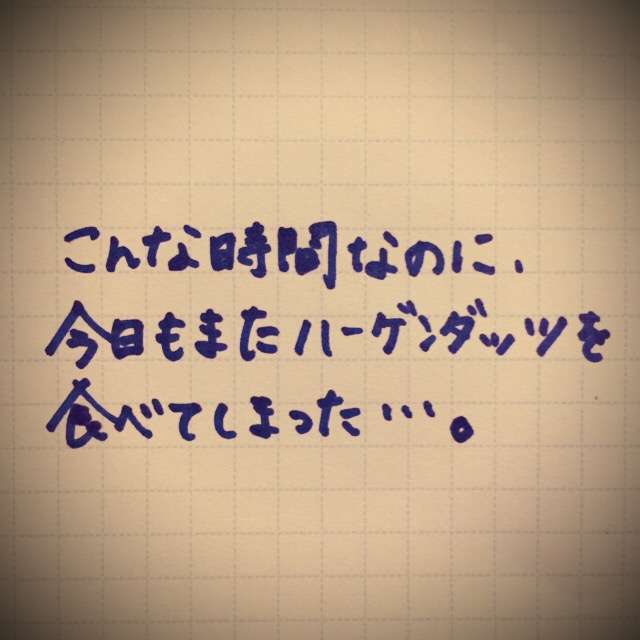 こんな時間なのに、
今日もまたハーゲンダッツを
食べてしまった…。